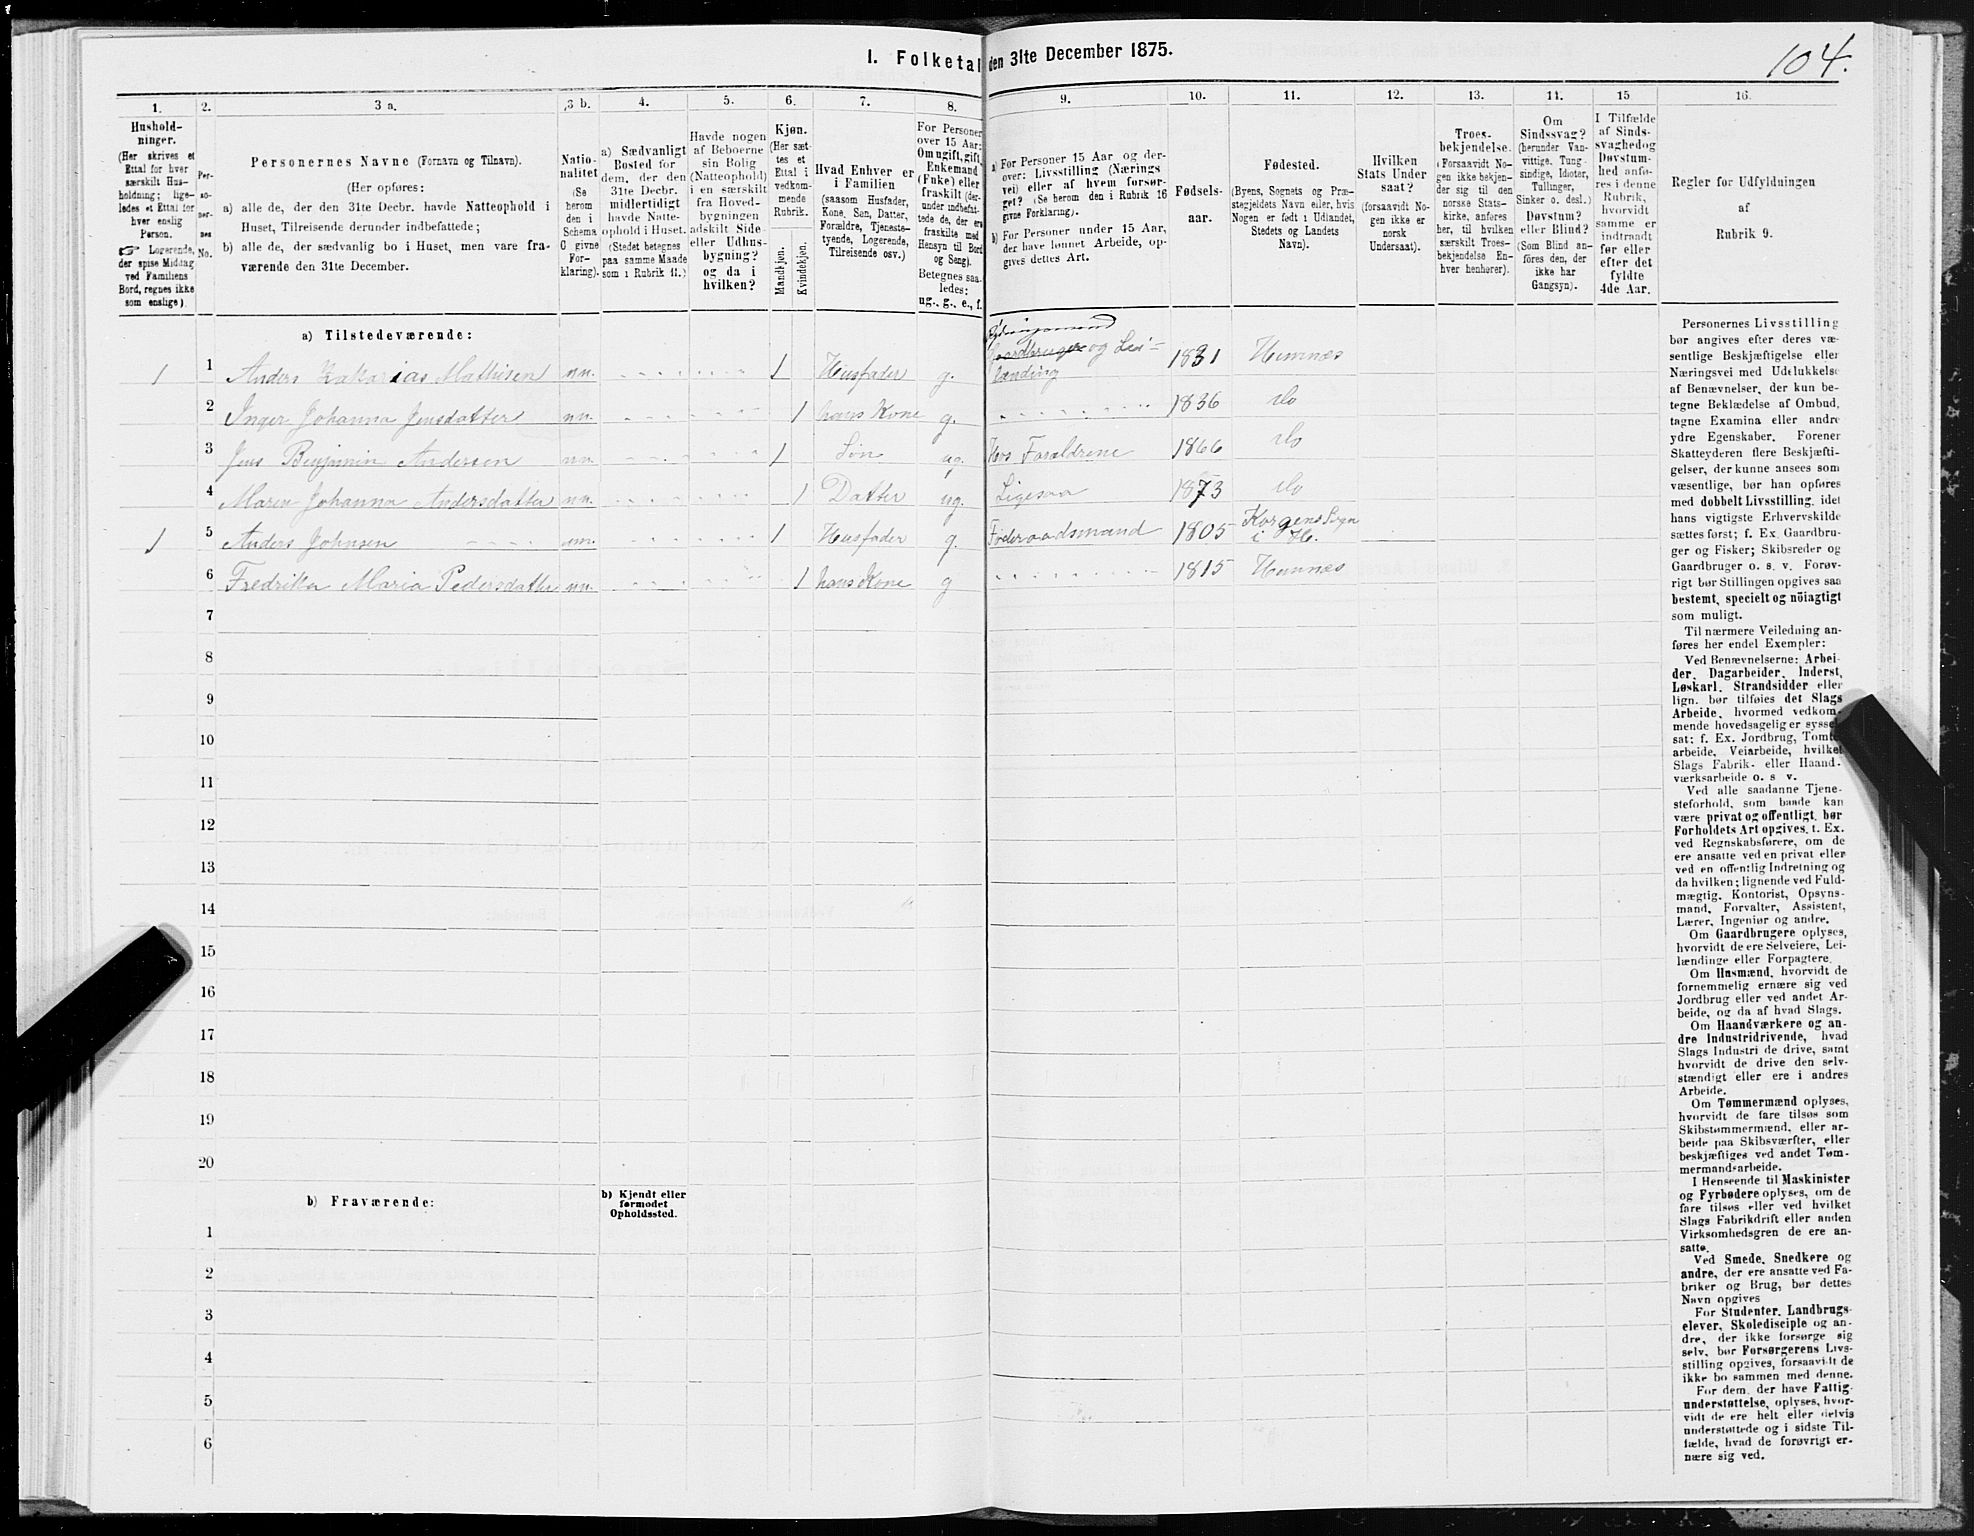 I. Folketal den 31te December 1875.
104.
1. 2. 3 a. 3 b. 4. 5. 6. 7. 8. 9. 10. 11. 12. 13. 14. 15 16.
Hushold-
ninger.
(Her skrives et
Ettal for hver
særskilt Hus-
holdning; lige-
ledes et Ettal for
hver enslig
Person.
☞ Logerende,
der spise Middag
ved Familiens
Bord, regnes ikke
som enslige).
Per-
so-
ner-
nes
No.
Personernes Navne (Fornavn og Tilnavn).
(Her opføres:
a) alle de, der den 31te Decbr. havde Natteophold i
Huset, Tilreisende derunder indbefattede;
b) alle de, der sædvanlig bo i Huset, men vare fra-
værende den 31te December.
Natio-
nalitet
(Se
herom
den i
Schema
C givne
For-
klaring).
a) Sædvanligt
Bosted for
dem, der den
31te Decbr.
midlertidigt
havde Natte-
ophold i Huset.
(Stedet betegnes
paa samme Maade
som i Rubrik 11.)
Havde nogen
af Beboerne
sin Bolig
(Natteophold)
i en særskilt
fra Hoved-
bygningen
adskilt Side-
eller Udhus-
bygning?
og da i
hvilken?
Kjøn.
(Her sæt-
tes et
Ettal i
vedkom-
mende
Rubrik.
Mandkjøn.
Kvindekjøn.
Hvad Enhver er
i Familien
(saasom Husfader,
Kone, Søn, Datter,
Forældre, Tjeneste-
tyende, Logerende,
Tilreisende osv.)
For Personer
over 15 Aar:
Om ugift, gift,
Enkemand
(Enke) eller
fraskilt (der-
under indbefat-
tede de, der ere
fraskilte med
Hensyn til Bord
og Seng).
Betegnes saa-
ledes:
ug., g., e., f.
a) For Personer 15 Aar og der-
over: Livsstilling (Nærings
vei) eller af hvem forsør-
get? (Se herom den i Rubrik 16
givne Forklaring).
b) For Personer under 15 Aar,
der have lønnet Arbeide, op-
gives dettes Art.
Fødsels-
aar.
Fødested.
(Byens, Sognets og Præ-
stegjeldets Navn eller, hvis
Nogen er født i Udlandet,
Stedets og Landets
Navn).
Hvilken
Stats Under
saat?
(forsaavidt No-
gen ikke er
norsk
Undersaat).
Troes-
bekjendelse.
(Forsaavidt No-
gen ikke bekjen-
der sig til den
norske Stats-
kirke, anføres
her, til hvilken
særskilt Troes-
bekjendelse En-
hver henhører).
Om
Sindssvag?
(herunder Van-
vittige, Tung-
sindige, Idioter,
Tullinger,
Sinker o. desl.)
Døvstum?
eller Blind?
(Som Blind an-
føres den, der
ikke har
Gangsyn).
I Tilfælde
af Sinds-
svaghed og
Døvstum-
hed anfø-
res i denne
Rubrik,
hvorvidt
samme er
indtraadt
før eller
efter det
fyldte
4de Aar.
Regler for Udfyldningen
af
Rubrik 9.
a) Tilstedeværende:
1 1 Anders Zakarias Mathisen nn. 1 Husfader g. Gaardbruger og Lei-lænding 1831 Hemnæs
2 Inger Johanna Jensdatter nn. 1 hans Kone g. 1836 do
3 Jens Benjamin Andersen nn. 1 Søn ug. Hos Forældrene 1866 do
4 Maren Johanna Andersdatter nn. 1 Datter ug. Ligesaa 1873 do
1 5 Anders Johnsen nn. 1 Husfader g. Føderaadsmand 1805 Korgens Sogn i H.
6 Fredrika Maria Pedersdatter nn. 1 hans Kone g 1815 Hemnæs
7
8
9
10
11
12
13
14
15
16
17
18
19
20
b) Fraværende:
b) Kjendt eller
formodet
Opholdssted.
1
2
3
4
5
6
Personernes Livsstilling
bør angives efter deres væ-
sentlige Beskjæftigelse eller
Næringsvei med Udelukkelse
af Benævnelser, der kun be-
tegne Beklædelse af Ombud,
tagne Examina eller andre
ydre Egenskaber. Forener
Skatteyderen flere Beskjæfti-
gelser, der kunne ansees som
væsentlige, bør han opføres
med dobbelt Livsstilling, idet
hans vigtigste Erhvervskilde
sættes først; f. Ex. Gaardbru-
ger og Fisker; Skibsreder og
Gaardbruger o. s. v. Forøv-
rigt bør Stillingen opgives saa
bestemt, specielt og nöiagtigt
som muligt.
Til nærmere Veiledning an-
føres her endel Exempler:
Ved Benævnelserne: Arbei-
der, Dagarbeider, Inderst,
Løskarl, Strandsidder eller
lign. bør tilføies det Slags
Arbeide, hvormed vedkom-
mende hovedsagelig er syssel-
sat; f. Ex. Jordbrug, Tomte-
arbeide, Veiarbeide, hvilket
Slags Fabrik- eller Haand-
værksarbeide o. s v.
Ved alle saadanne Tjene-
steforhold, som baade kan
være privat og offentligt, bør
Forholdets Art opgives, t. Ex.
ved Regnskabsførere, om de
ere ansatte ved en privat eller
ved en offentlig Indretning og
da hvilken; lignende ved Fuld-
mægtig, Kontorist, Opsyns-
mand, Forvalter, Assistent,
Lærer, Ingeniør og andre.
Om Gaardbrugere oplyses,
hvorvidt de ere Selveiere, Lei-
lændinge eller Forpagtere.
Om Husmænd, hvorvidt de
fornemmelig ernære sig ved
Jordbrug eller ved andet Ar-
beide, og da af hvad Slags.
Om Haandværkere og an-
dre Industridrivende, hvad
Slags Industri de drive, samt
hvorvidt de drive den selv-
stændigt eller ere i andres
Arbeide.
Om Tømmermænd oplyses,
hvorvidt de fare tilsøs som
Skibstømmermænd, eller ar-
beide paa Skibsværfter, eller
beskjæftiges ved andet Tøm-
mermandsarbeide.
I Henseende til Maskinister
og Fyrbødere oplyses, om de
fare tilsøs eller ved hvilket
Slags Fabrikdrift eller anden
Virksomhedsgren de ere an-
satte.
Ved Smede, Snedkere og
andre, der ere ansatte ved Fa-
briker og Brug, bør dettes
Navn opgives
For Studenter, Landbrugs-
elever, Skoledisciple og an-
dre, der ikke forsørge sig
selv, bør Forsørgerens Livs-
stilling opgives, forsaavidt de
ikke bo sammen med denne.
For dem, der have Fattig-
understøttelse, oplyses, hvor-
vidt de ere helt eller delvis
understøttede og i sidste Til-
fælde, hvad de forøvrigt er-
nære sig ved.